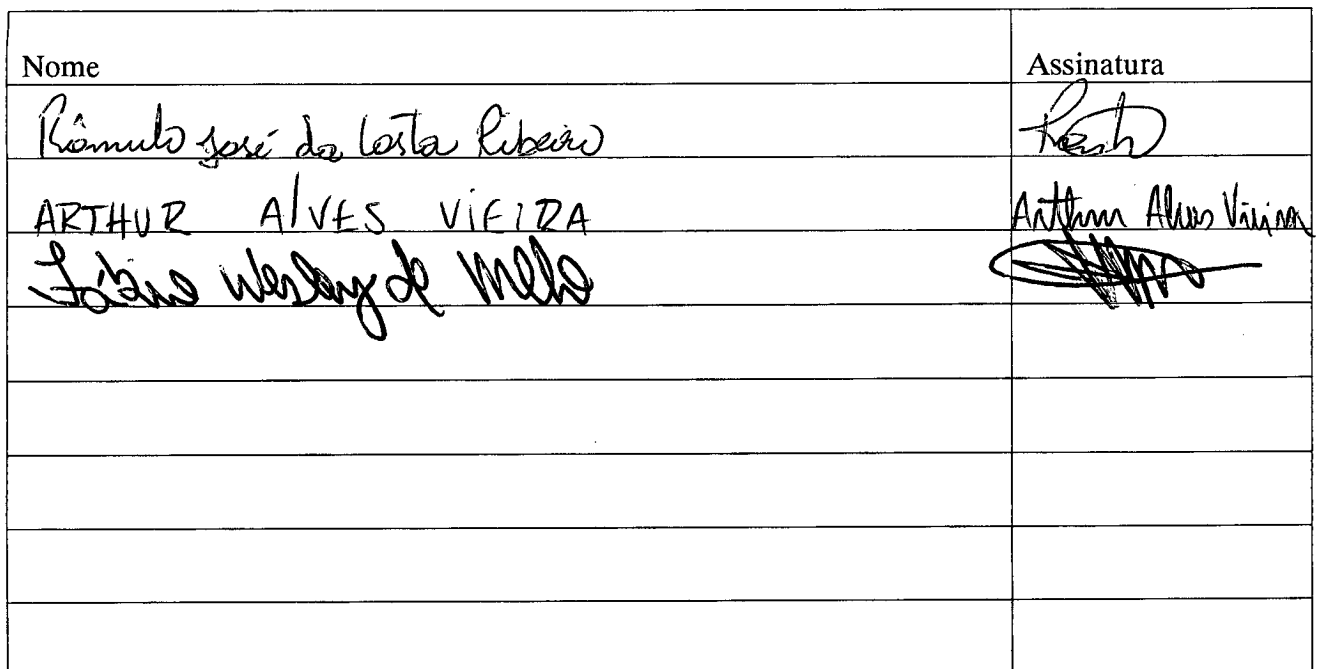 Nome Assinatura
Rômulo José da Costa Ribeiro
ARTHUR ALVES VIEIRA Arthur Alves Vieira
Fábio Wesley de Mello